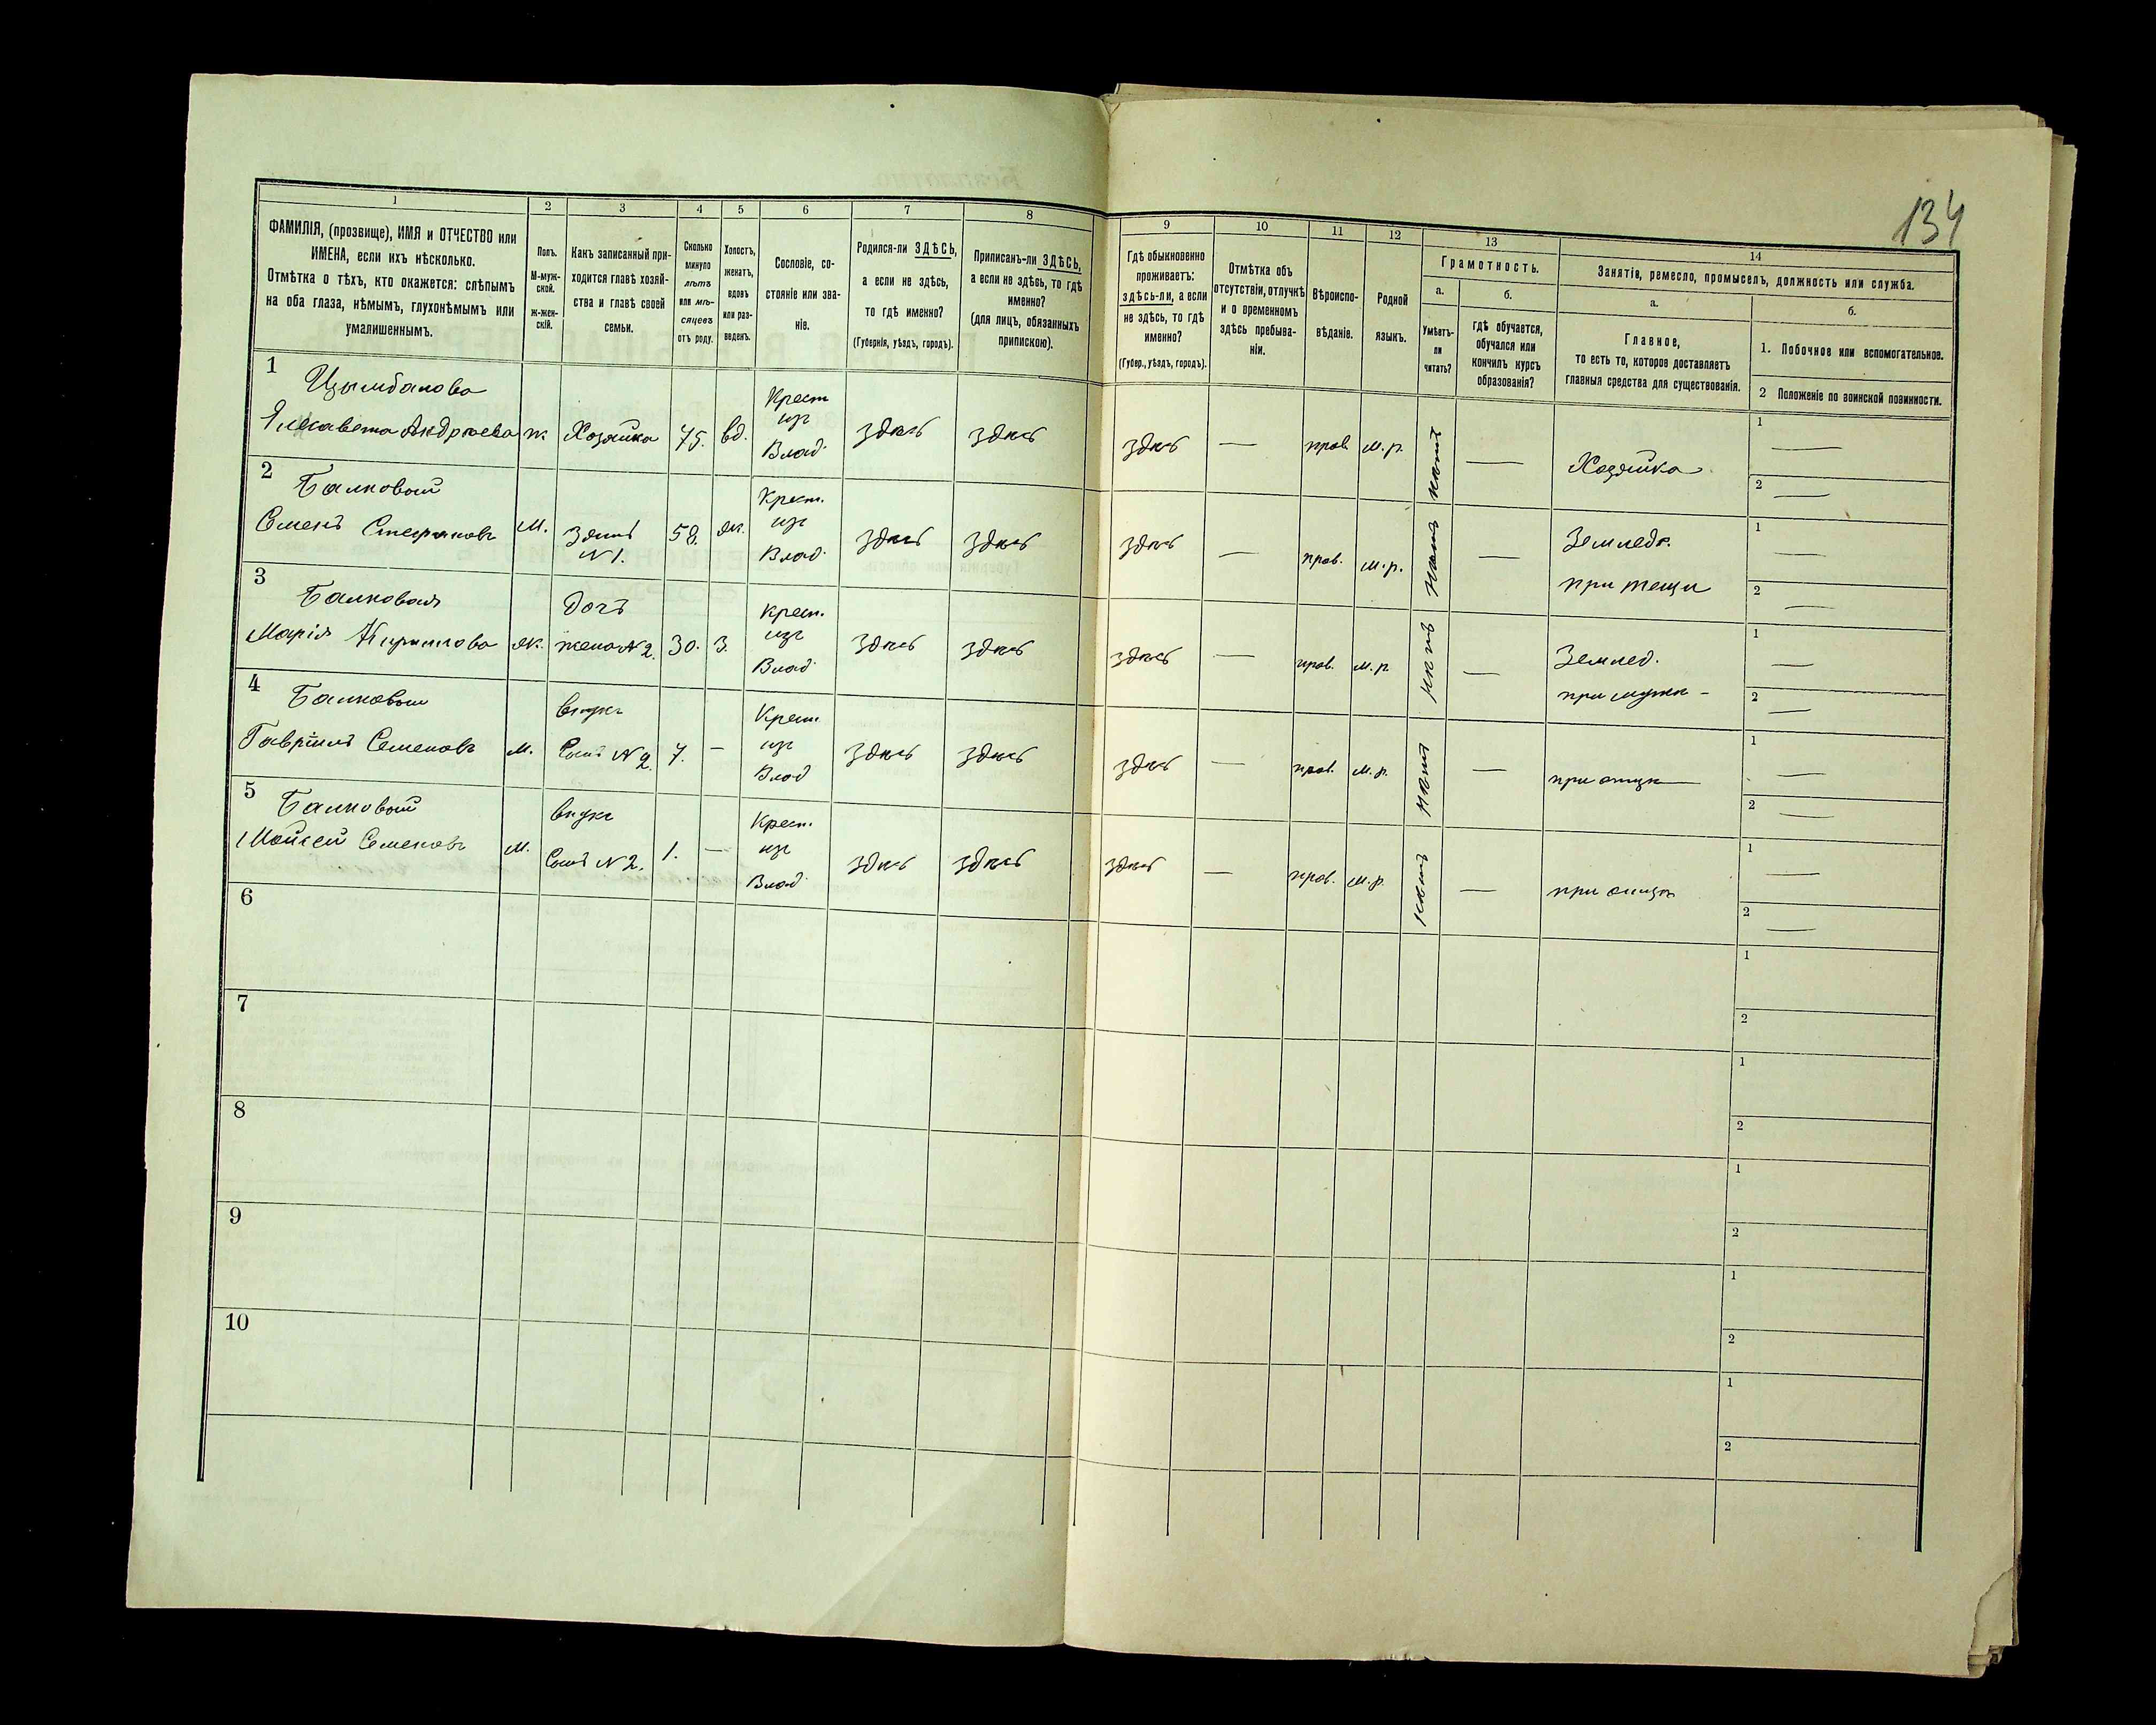 134
1 2 3 4 5 6 7 8 9 10 11 12 13 14
ФАМИЛІЯ, (прозвище), ИМЯ и ОТЧЕСТВО или
ИМЕНА, если ихъ нѣсколько.
Отмѣтка о тѣхъ, кто окажется: слѣпымъ
на оба глаза, нѣмымъ, глухонѣмымъ или
умалишеннымъ.
Полъ.
М-муж-
ской.
ж-жен-
скій.
Какъ записанный при-
ходится главѣ хозяй-
ства и главѣ своей
семьи.
Сколько
минуло
лѣтъ
или мѣ-
сяцевъ
отъ роду.
Холостъ,
женатъ,
вдовъ
или раз-
веденъ.
Сословіе, со-
стояніе или зва-
ніе.
Родился-ли ЗДѢСЬ,
а если не здѣсь,
то гдѣ именно?
(Губернія, уѣздъ, городъ).
Приписанъ-ли ЗДѢСЬ,
а если не здѣсь, то гдѣ
именно?
(для лицъ, обязанныхъ
припискою).
Гдѣ обыкновенно
проживаетъ:
здѣсь-ли, а если
не здѣсь, то гдѣ
именно?
(Губер., уѣздъ, городъ).
Отмѣтка объ
отсутствіи, отлучкѣ
и о временномъ
здѣсь пребыва-
ніи.
Вѣроиспо-
вѣданіе.
Родной
языкъ.
Грамотность.
а.
Умѣетъ-
ли
читать?
б.
гдѣ обучается,
обучался или
кончилъ курсъ
образованія?
Занятіе, ремесло, промыселъ, должность или служба.
а.
Главное,
то есть то, которое доставляетъ
главныя средства для существованія.
б.
1. Побочное или вспомогательное.
2 Положеніе по воинской повинности.
1 Цымбалова Крест 1
Елисавета Андрюева ж. Хозяйка 75. вд. изъ здѣсь здѣсь здѣсь — прав. м.р. нѣтъ — Хозяйка —
Влад. 2 —
2 Балковый Крест. 1
Семенъ Стефановъ М. Зять 58. ж. изъ здѣсь здѣсь здѣсь — прав. м.р. нѣтъ — Земледѣ. —
N 1. Влад. при тещи 2 —
3 Балковая дочь крест. 1
Марія Кирилова ж. жена N 2. 30. З. изъ здѣсь здѣсь здѣсь — прав. м.р. нѣтъ — Землед. —
Влад. при мужѣ 2 —
4 Балковый внукъ Крест. 1
Гавріилъ Семеновъ М. Сынъ N 2. 7. — изъ здѣсь здѣсь здѣсь — прав. м.р. нѣтъ — при отцѣ —
Влад 2 —
5 Балковый внукъ Крест. 1
Мойсей Семеновъ М. Сынъ N 2. 1. — изъ здѣсь здѣсь здѣсь — прав. м.р. нѣтъ — при отцѣ —
Влад. 2 —
6
1
2
7
1
2
8
1
2
9
1
2
10
1
2